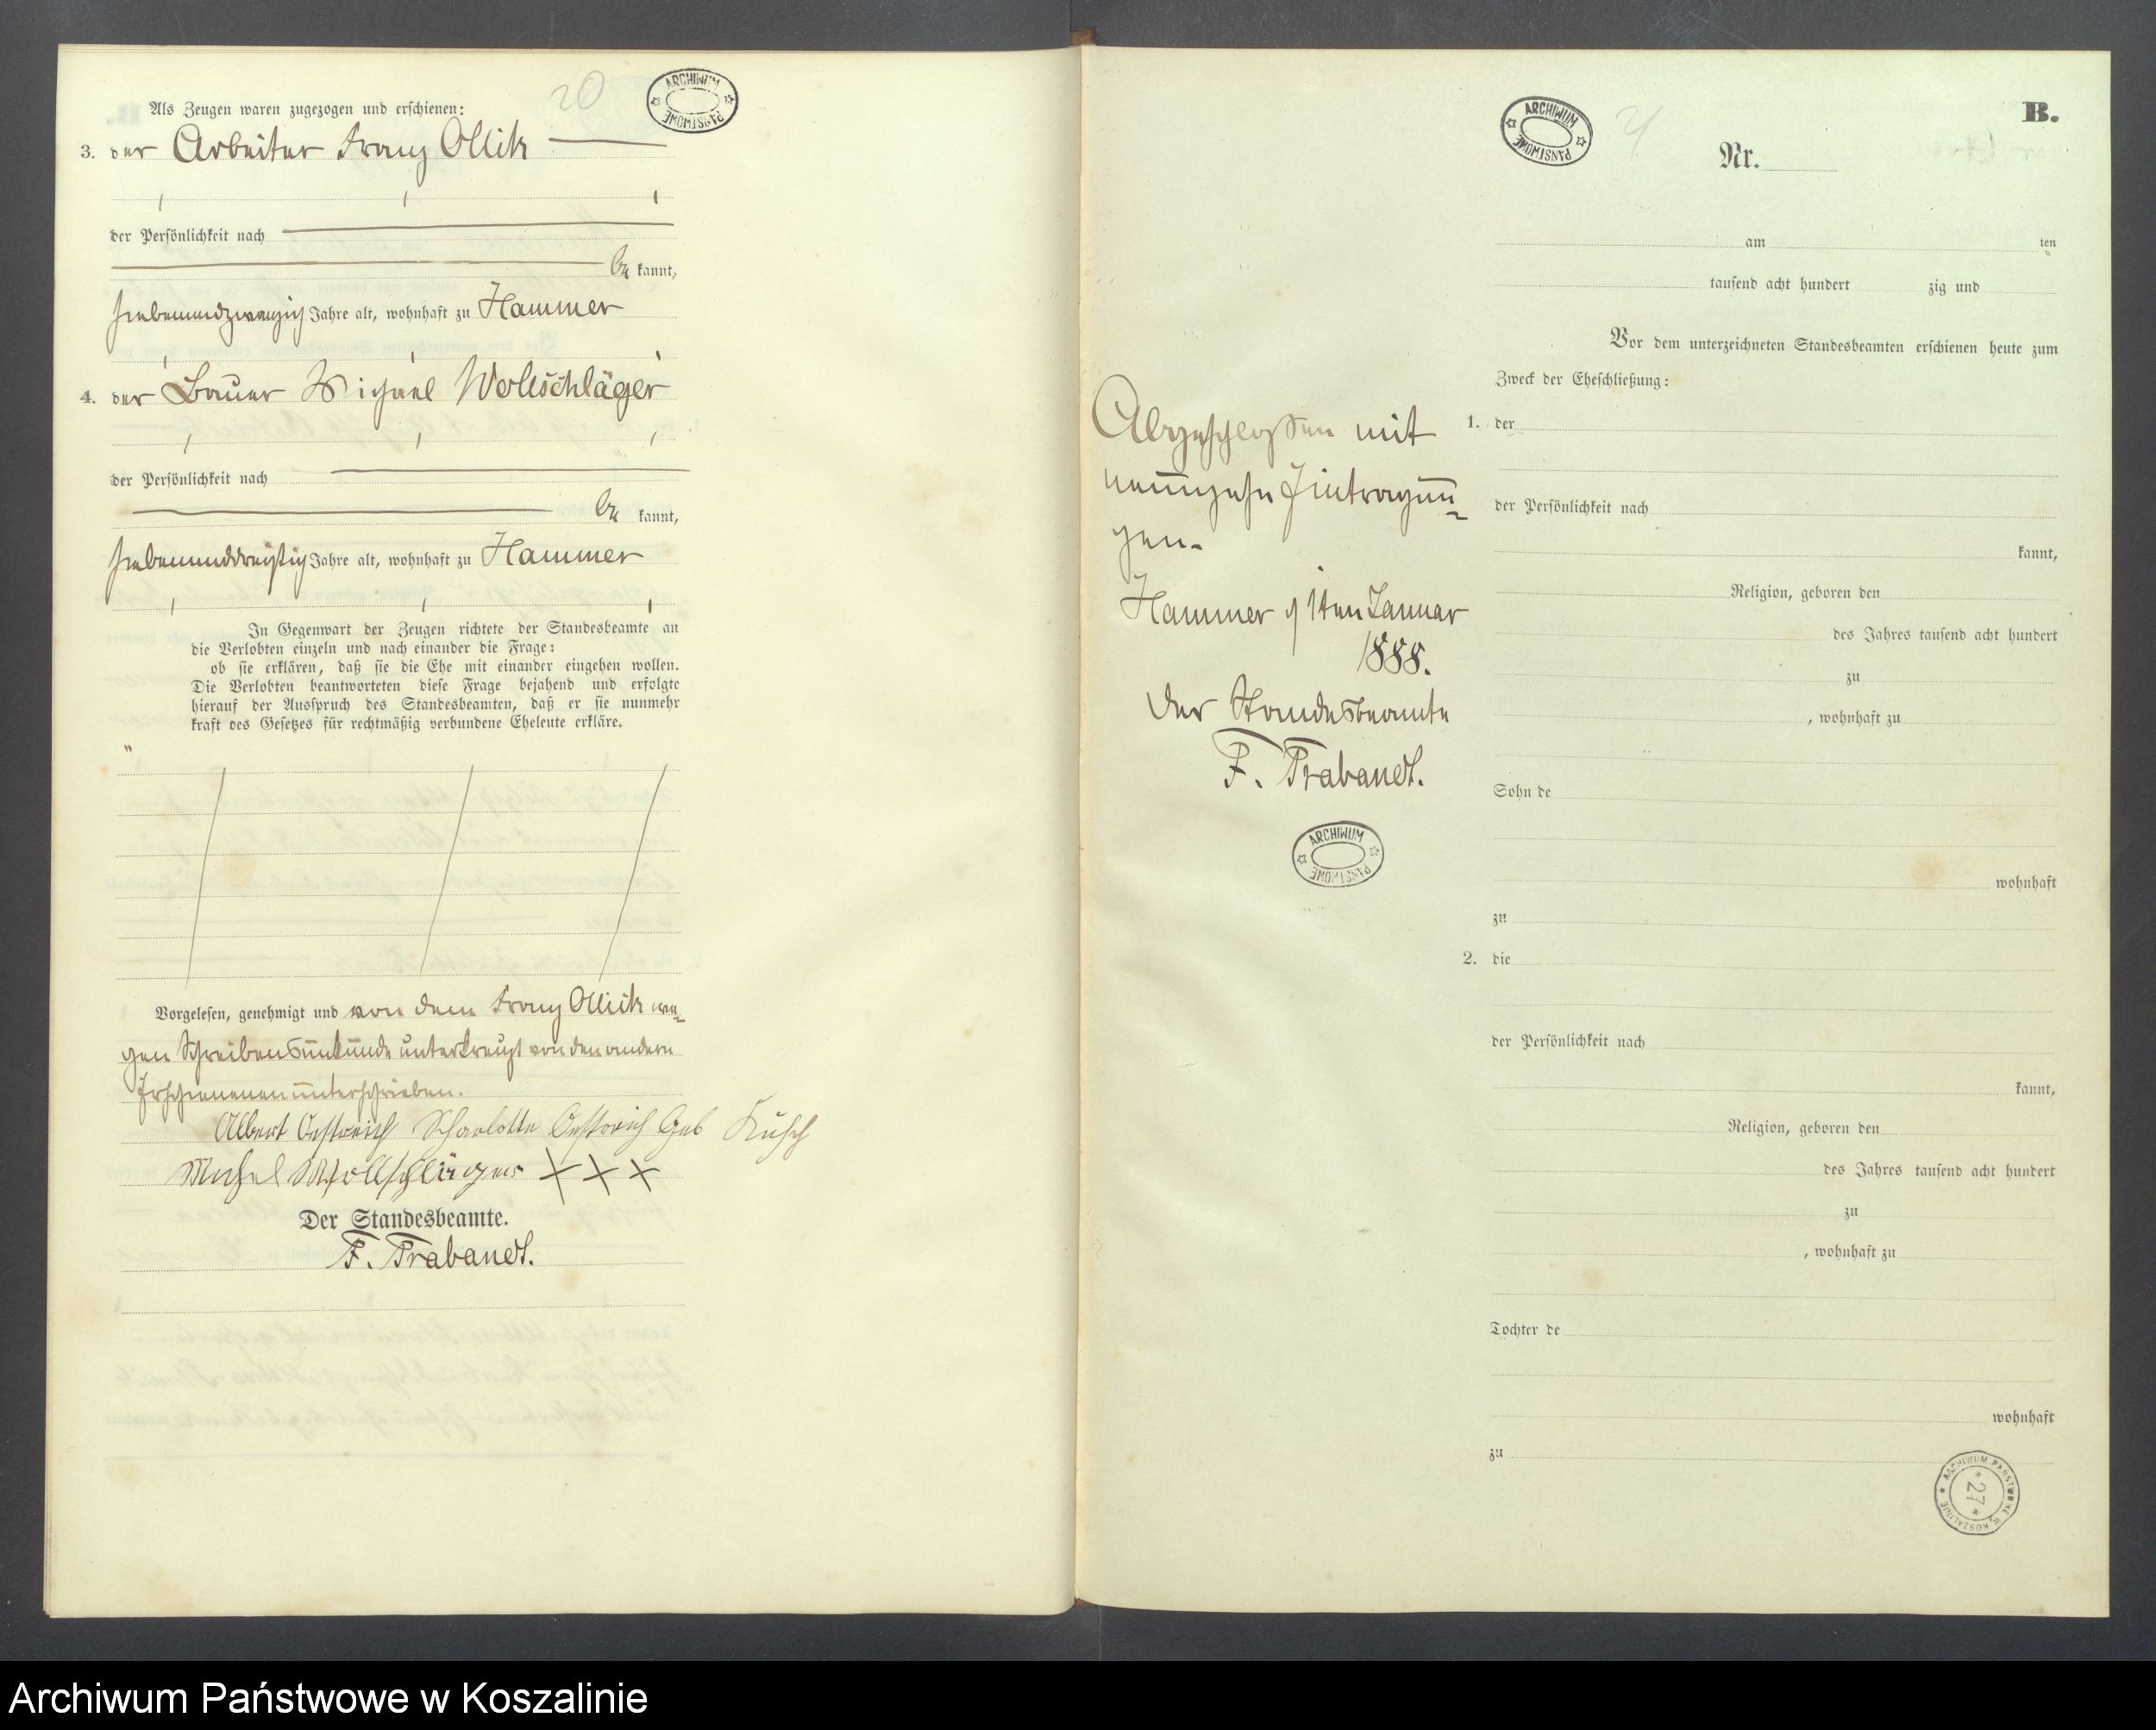 20
ARCHIWUM PAŃSTWOWE
Als Zeugen waren zugezogen und erschienen:
3. der Arbeiter Franz Ollik
der Persönlichkeit nach
be kannt,
siebenundzwanzig Jahre alt, wohnhaft zu Hammer
4. der Bauer Michael Wollschläger
der Persönlichkeit nach
be kannt,
siebenunddreißig Jahre alt, wohnhaft zu Hammer
In Gegenwart der Zeugen richtete der Standesbeamte an
die Verlobten einzeln und nach einander die Frage:
ob sie erklären, daß sie die Ehe mit einander eingehen wollen.
Die Verlobten beantworteten diese Frage bejahend und erfolgte
hierauf der Ausspruch des Standesbeamten, daß er sie nunmehr
kraft des Gesetzes für rechtmäßig verbundene Eheleute erkläre.
Vorgelesen, genehmigt und von dem Franz Ollick we-
gen Schreibensunkunde unterkreuzt von den andern
Erschienenen unterschrieben.
Albert Oestreich Scharlotte Oestreich Geb Küsch
Michel Wollschläger XXX
Der Standesbeamte.
F. Trabandt.
B.
ARCHIWUM PAŃSTWOWE
21
Nr.
am ten
tausend acht hundert zig und
Vor dem unterzeichneten Standesbeamten erschienen heute zum
Zweck der Eheschließung:
1. der
der Persönlichkeit nach
kannt,
Religion, geboren den
des Jahres tausend acht hundert
zu
, wohnhaft zu
Sohn de
wohnhaft
zu
2. die
der Persönlichkeit nach
kannt,
Religion, geboren den
des Jahres tausend acht hundert
zu
, wohnhaft zu
Tochter de
wohnhaft
zu
Abgeschlossen mit
neunzehn Eintragun-
gen.
Hammer d 1ten Januar
1888.
Der Standesbeamte
F. Trabandt.
ARCHIWUM PAŃSTWOWE
ARCHIWUM PAŃSTWOWE W KOSZALINIE
27
Archiwum Państwowe w Koszalinie